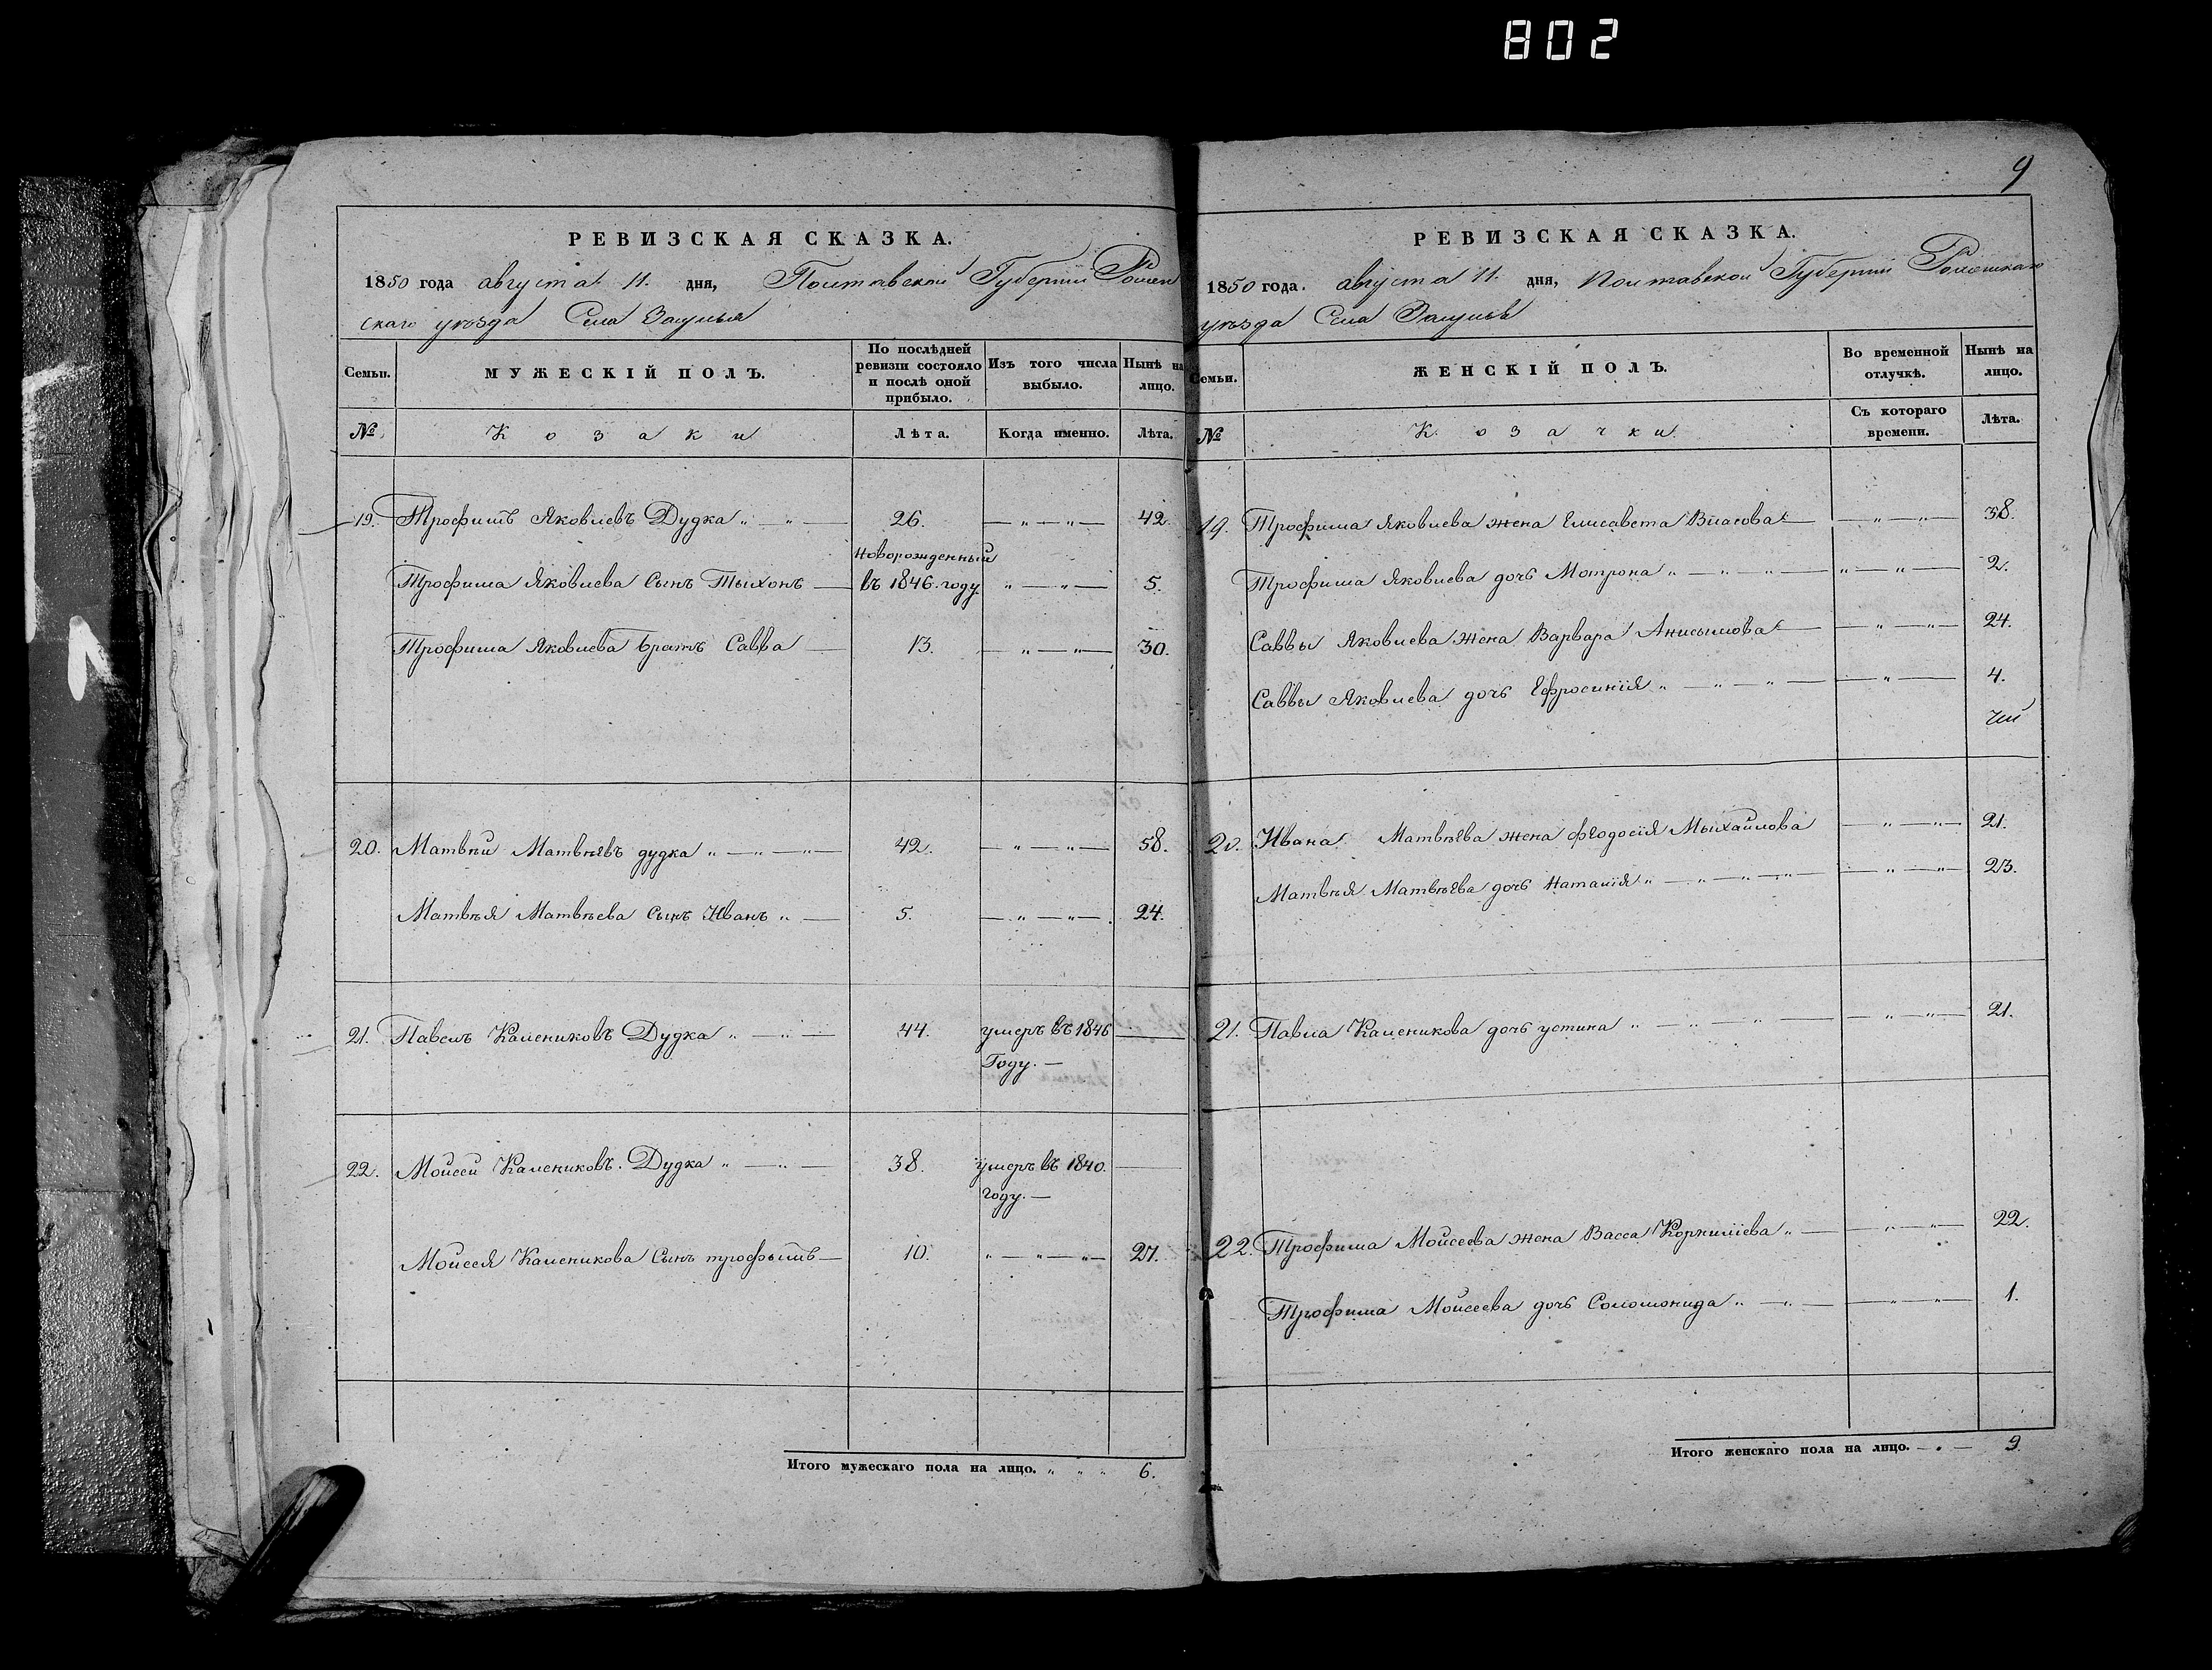 802
РЕВИЗСКАЯ СКАЗКА.
1850 года августа 11. дня, Полтавской Губерніи Ромен
скаго уѣзда Села Засулья
Семьи. МУЖЕСКІЙ ПОЛЪ. По послѣдней ревизіи состояло и послѣ оной прибыло. Изъ того числа выбыло. Нынѣ на лицо.
№ Козаки Лѣта. Когда именно. Лѣта.
19. Трофимъ Яковлевъ Дудка „ — „ — 26. — „ — „ — 42
Новорожденный
Трофима Яковлева Сынъ Тыхонъ — въ 1846. году „ — „ — 5.
Трофима Яковлева братъ Савва — 13. — „ — „ — 30.
20. Матвѣй Матвѣевъ дудка „ — „ — „ — 42. — „ — „ — 58.
Матвѣя Матвѣева Сынъ Иванъ „ — 5. — „ — „ — 24.
21. Павелъ Калениковъ Дудка „ — „ — 44. умеръ въ 1846 —
Году. —
22. Мойсей Калениковъ. Дудка „ — „ — 38. умеръ въ 1840. —
году. —
Мойсея Каленикова Сынъ трофымъ — 10. „ — „ — „ — 27.
Итого мужескаго пола на лицо. „ „ „ 6.
9
РЕВИЗСКАЯ СКАЗКА.
1850 года. августа 11. дня, Полтавской Губерніи Роменскаго
уѣзда Села Засулья
Семьи. ЖЕНСКІЙ ПОЛЪ. Во временной отлучкѣ. Нынѣ на лицо.
№ Козачки Съ котораго времени. Лѣта.
19. Трофима Яковлева жена Елисавета Власова — — „ — „ — 38.
Трофима Яковлева дочь Мотрона „ — „ — „ — „ — „ — 2.
Саввы Яковлева жена Варвара Анисымова — — „ — „ — 24.
Саввы Яковлева дочь Ефросинія „ — „ — „ — — „ — 4.
20. Ивана Матвѣева жена Феодосія Мыхайлова — „ — „ — 21.
Матвѣя Матвѣева дочь Наталія „ — „ — „ — „ — — „ — „ — 23.
21. Павла Каленикова дочь устина „ — „ — „ — — „ — „ — 21.
22. Трофима Мойсеева жена Васса Корнилієва „ — — „ — „ — 22.
Трофима Мойсеева дочь Соломонида „ — „ — — „ — „ — 1.
Итого женскаго пола на лицо. — „ — 9.